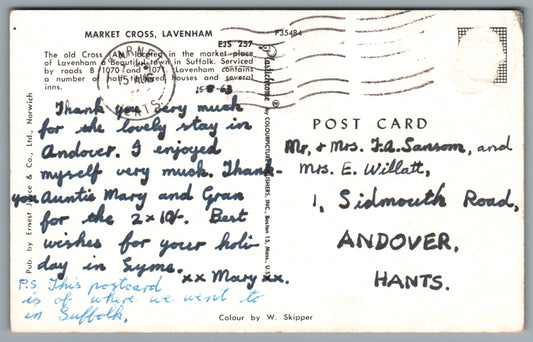 MARKET CROSS, LAVENHAM
EJS 257
P35484
The old Cross (AM) located in the market place
of Lavenham a beautiful town in Suffolk. Serviced
by roads B 1070 and 1071. Lavenham contains
a number of half-timbered houses and several
inns.
BARNET
15 AUG
HERTS
15-8-63
Thank you very much
for the lovely stay in
Andover. I enjoyed
myself very much. Thank-
you Auntie Mary and Gran
for the 2x10/-. Best
wishes for your holi-
day in Lyme.
xx Mary xx.
P.S This postcard
is of where we went to
in Suffolk.
Pub. by Ernest Joyce & Co., Ltd., Norwich
Plastichrome ® by COLOURPICTURE PUBLISHERS, INC., Boston 15, Mass., U.S.A.
POST CARD
Mr. & Mrs. F.A. Sansom, and
Mrs. E. Willatt,
1, Sidmouth Road,
ANDOVER.
HANTS.
Colour by W. Skipper